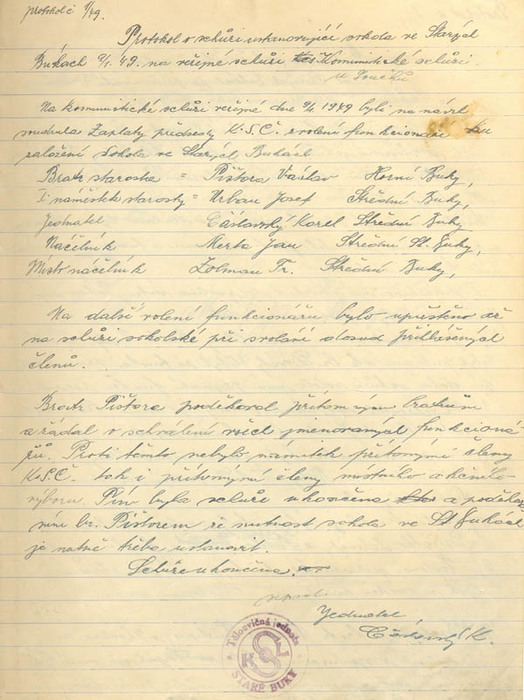 protokol č 1/49.
Protokol o schůzi ustanovující sokola ve Starých
Bukách 9/1. 49. na veřejné schůzi Komunistické schůzi
u Součků
Na komunistické schůzi veřejné dne 9/1 1949 byli na návrh
Zaplaty předsedy K.S.Č. zvoleni funkcionáři
založení Sokola ve Starých Bukách
Bratr starosta = Pištora Václav Horní Buky,
I. náměstek starosty = Urban Josef Střední Buky,
Jednatel Čáslavský Karel Střední Buky
Náčelník Nerta Jan Střední St. Buky,
Místr náčelník Zolman Fr. Střední Buky,
Na další volení funkcionářů bylo upuštěno až
na schůzi sokolské při svolání dosud přihlášených
členů.
Bratr Pištora poděkoval přítomným bratrům
a žádal o schválení všech jmenovaných funkcioná
řů. Proti tomto nebylo námitek přítomnými členy
K.S.Č. tak i přítomnými členy místního akčního
výboru. Pln byla schůze ukončena a poděko
váni br. Pištorem že nutnost sokola ve St Bukách
je nutně třeba ustanovit.
Schůze ukončena.
Jednatel
Čáslavský K.
Tělocvičná jednota
STARÉ BUKY